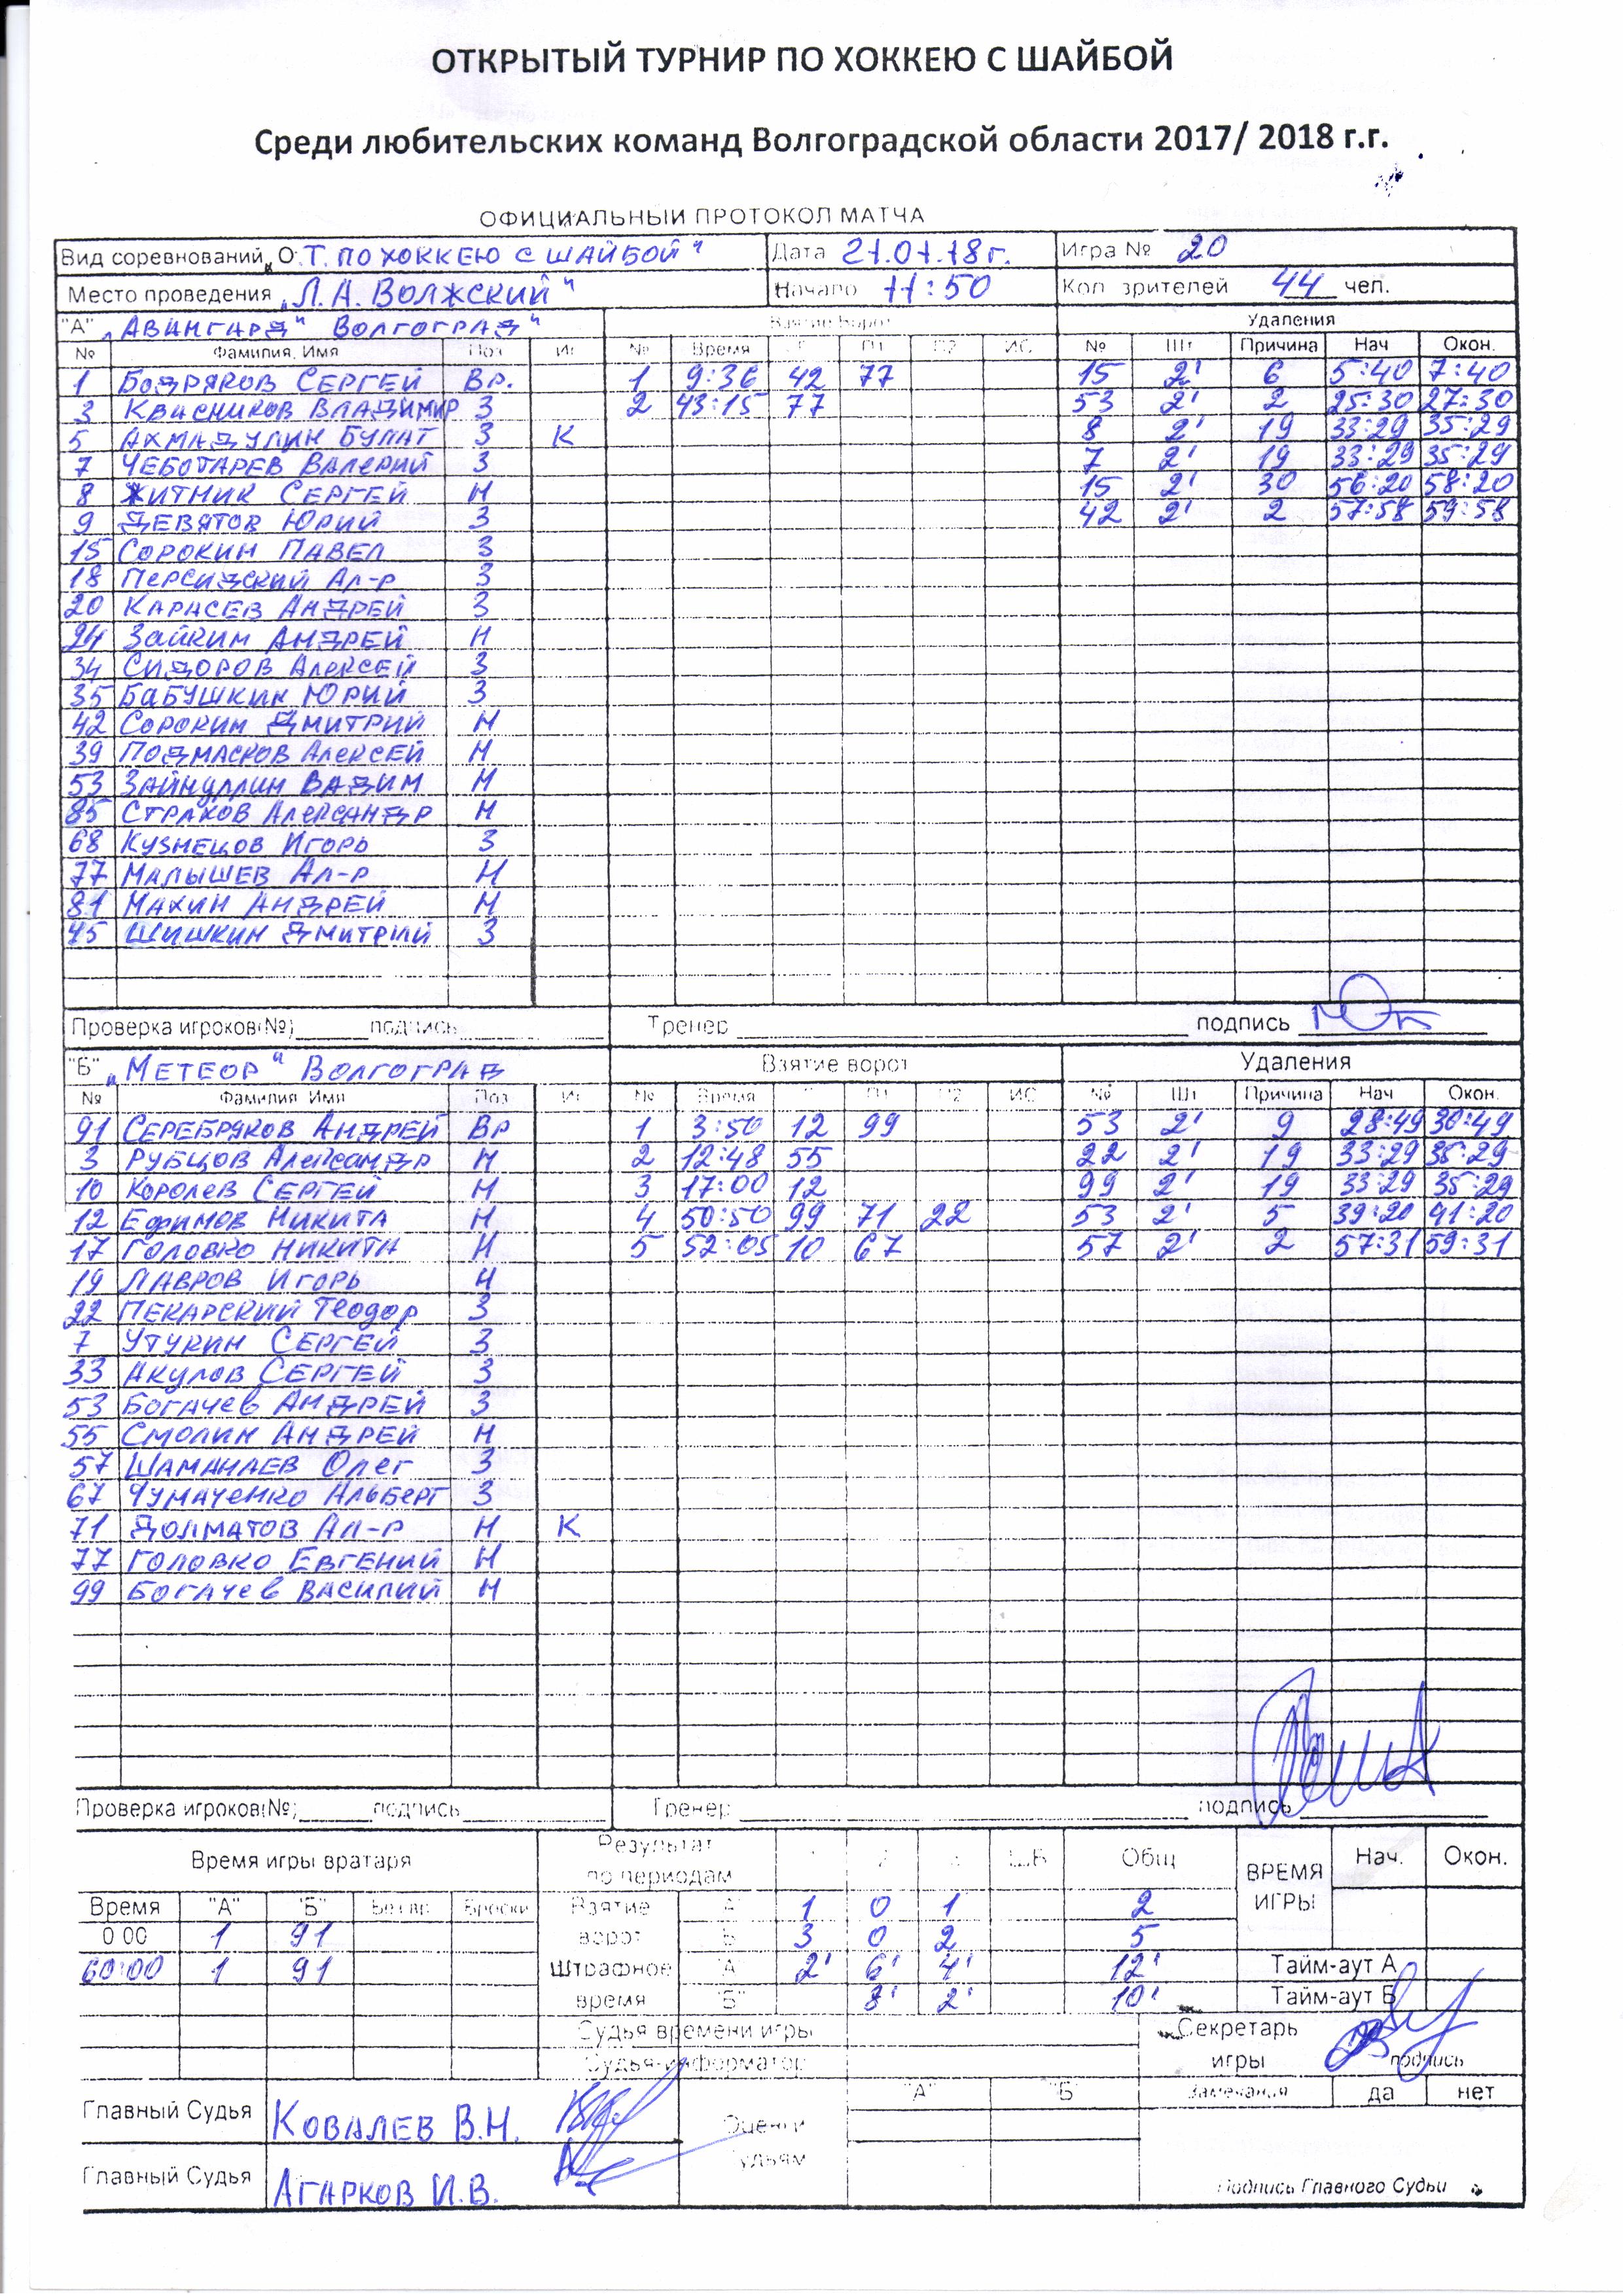 ОТКРЫТЫЙ ТУРНИР ПО ХОККЕЮ С ШАЙБОЙ
Среди любительских команд Волгоградской области 2017/ 2018 г.г.
ОФИЦИАЛЬНЫЙ ПРОТОКОЛ МАТЧА
Вид соревнований „О.Т. ПО ХОККЕЮ С ШАЙБОЙ" Дата 21.01.18г. Игра № 20
Место проведения „Л.А. ВОЛЖСКИЙ" Начало 11:50 Кол. зрителей 44 чел.
"А" „АВАНГАРД" ВОЛГОГРАД" Взятие ворот Удаления
№ Фамилия, Имя Поз Иг № Время Г П1 П2 ИС № Шт Причина Нач Окон.
1 БОДРЯКОВ СЕРГЕЙ Вр. 1 9:36 42 77 15 2' 6 5:40 7:40
3 КВАСНИКОВ ВЛАДИМИР З 2 43:15 77 53 2' 2 25:30 27:30
5 АХМАДУЛИН БУЛАТ З К 8 2' 19 33:29 35:29
7 ЧЕБОТАРЕВ ВАЛЕРИЙ З 7 2' 19 33:29 35:29
8 ЖИТНИК СЕРГЕЙ Н 15 2' 30 56:20 58:20
9 ДЕВЯТОВ ЮРИЙ З 42 2' 2 57:58 59:58
15 СОРОКИН ПАВЕЛ З
18 ПЕРСИДСКИЙ АЛ-Р З
20 КАРАСЕВ АНДРЕЙ З
24 ЗАЙКИН АНДРЕЙ Н
34 СИДОРОВ АЛЕКСЕЙ З
35 БАБУШКИН ЮРИЙ З
42 СОРОКИН ДМИТРИЙ Н
39 ПОДМАСКОВ АЛЕКСЕЙ Н
53 ЗАЙНУЛЛИН ВАДИМ Н
85 СТРАХОВ АЛЕКСАНДР Н
68 КУЗНЕЦОВ ИГОРЬ З
77 МАЛЫШЕВ АЛ-Р Н
81 МАХИН АНДРЕЙ Н
45 ШИШКИН ДМИТРИЙ З
Проверка игроков(№) подпись Тренер подпись
"Б" „МЕТЕОР" ВОЛГОГРАД Взятие ворот Удаления
№ Фамилия Имя Поз Иг № Время П1 П2 ИС № Шт Причина Нач Окон.
91 СЕРЕБРЯКОВ АНДРЕЙ Вр 1 3:50 12 99 53 2' 9 28:49 30:49
3 РУБЦОВ АЛЕКСАНДР Н 2 12:48 55 22 2' 19 33:29 35:29
10 КОРОЛЕВ СЕРГЕЙ Н 3 17:00 12 99 2' 19 33:29 35:29
12 ЕФИМОВ НИКИТА Н 4 50:50 99 71 22 53 2' 5 39:20 41:20
17 ГОЛОВКО НИКИТА Н 5 52:05 10 67 57 2' 2 57:31 59:31
19 ЛАВРОВ ИГОРЬ Н
22 ПЕКАРСКИЙ ТЕОДОР З
7 УТУКИН СЕРГЕЙ З
33 АКУЛОВ СЕРГЕЙ З
53 БОГАЧЕВ АНДРЕЙ З
55 СМОЛИН АНДРЕЙ Н
57 ШАМАНАЕВ ОЛЕГ З
67 ЧУМАЧЕНКО АЛЬБЕРТ З
71 ДОЛМАТОВ АЛ-Р Н К
77 ГОЛОВКО ЕВГЕНИЙ Н
99 БОГАЧЕВ ВАСИЛИЙ Н
Проверка игроков(№) подпись Тренер подпись
Время игры вратаря Результат по периодам 2 3 Ш.Б Общ ВРЕМЯ ИГРЫ Нач. Окон.
Время "А" "Б" Без вр. Броски Взятие А 1 0 1 2
0 00 1 91 ворот Б 3 0 2 5
60:00 1 91 Штрафное "А" 2' 6' 4' 12' Тайм-аут А
время "Б" 8' 2' 10' Тайм-аут Б
Судья времени игры Секретарь
Судья-информатор игры подпись
"А" "Б" Замечания да нет
Главный Судья КОВАЛЕВ В.Н. Оценки
Главный Судья АГАРКОВ И.В. судьям
Подпись Главного Судьи